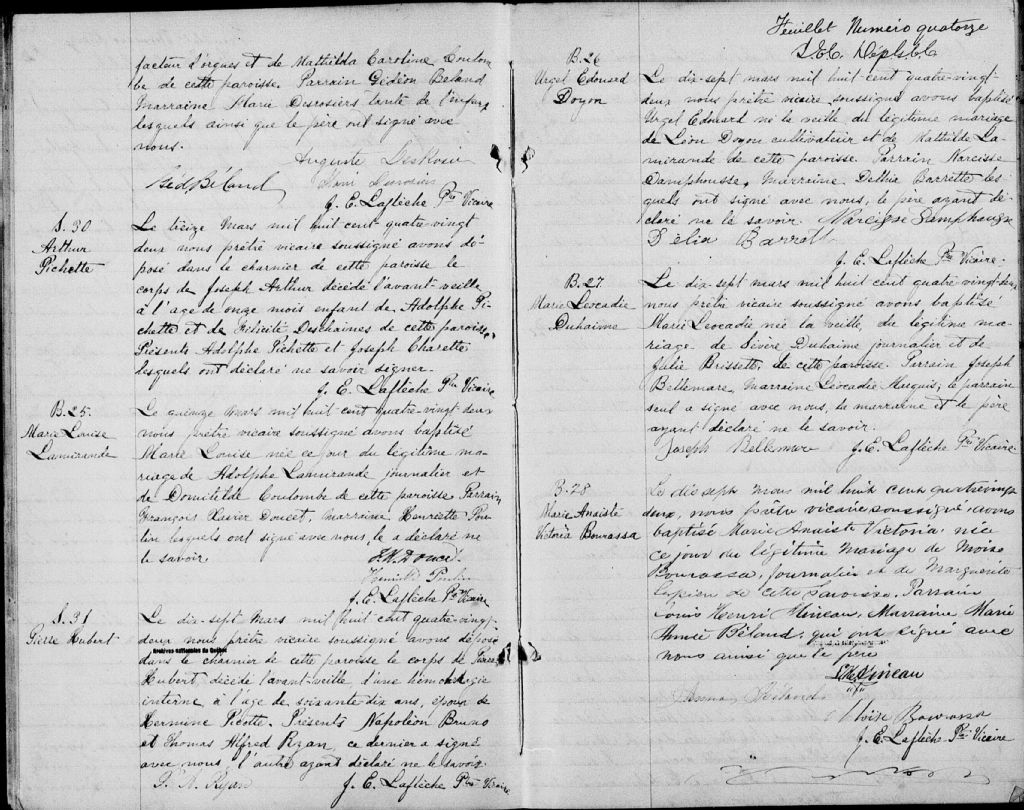 facteur d'orgues et de Mathilda Caroline Coulom
be de cette paroisse. Parrain Gédéon Beland
Marraine Marie Desrosiers tante de l'enfant
lesquels ainsi que le père ont signé avec
nous.
Auguste DesRosier
Géd Béland
J. E. Laflèche Ptre Vicaire
S. 30
Arthur
Pichette
Le treize Mars mil huit cent quatre-vingt
deux nous prêtre vicaire soussigné avons dé-
posé dans le charnier de cette paroisse le
corps de Joseph Arthur décédé l'avant-veille
à l'age de onze mois enfant de Adolphe Pi-
chette et de Félicité Deschaines de cette paroisse.
Présents Adolphe Pichette et Joseph Charette
lesquels ont déclaré ne savoir signer.
J. E. Laflèche Ptre Vicaire
B. 25.
Marie Louise
Lamirande
Le quinze Mars mil huit cent quatre-vingt-deux
nous prêtre vicaire soussigné avons baptisé
Marie Louise née ce jour du légitime ma-
riage de Adolphe Lamirande journalier et
de Domitilde Coulombe de cette paroisse Parrain
François Xavier Doucet, marraine Henriette Pou-
lin lesquels ont signé avec nous, le a déclaré ne
le savoir.
F.X. Doucet
Poulin
J. E. Laflèche Ptre Vicaire
S. 31
Pierre Hubert
Le dix-sept Mars mil huit cent quatre-vingt-
deux nous prêtre vicaire soussigné avons déposé
Archives nationales du Québec
dans le charnier de cette paroisse le corps de Pierre
Hubert décédé l'avant-veille d'une hémorragie
interne à l'âge de soixante-dix ans, époux de
Hermine Picotte. Présents Napoléon Bruno
et Thomas Alfred Ryan, ce dernier a signé
avec nous, l'autre ayant déclaré ne le savoir
T. A. Ryan
J. E. Laflèche Ptre Vicaire
Feuillet Numéro quatorze
B. 26
Urgel Edouard
Doyon
Le dix-sept mars mil huit cent quatre-vingt-
deux nous prêtre vicaire soussigné avons baptisé
Urgel Edouard né la veille du légitime mariage
de Léon Doyon cultivateur et de Mathilde La-
mirande de cette paroisse. Parrain Narcisse
Damphousse, Marraine Delhia Barrette les-
quels ont signé avec nous, le père ayant dé-
claré ne le savoir. Narcisse Damphousse
Délia Barrett
J. E. Laflèche Ptre Vicaire.
B. 27
Marie Léocadie
Duhaime
Le dix-sept mars mil huit cent quatre-vingt-deux
nous prêtre vicaire soussigné avons baptisé
Marie Léocadie née la veille, du légitime ma-
riage de Sévère Duhaime journalier et de
Julie Brissette, de cette paroisse. Parrain Joseph
Bellemare, Marraine Léocadie Auguis; le parrain
seul a signé avec nous, la marraine et le père
ayant déclaré ne le savoir.
Joseph Bellemare J. E. Laflèche Ptre Vicaire
B. 28
Marie Anaïste
Victoria Bourassa
Le dix sept Mars mil huit cent quatrevingt
deux, nous prêtre vicaire soussigné, avons
baptisé Marie Anaiste Victoria née
ce jour du légitime Mariage de Moïse
Bourassa, Journalier et de Marguerite
de cette Paroisse, Parrain
Louis Henri Mineau, Marraine Marie
Béland, qui ont signé avec
nous ainsi que le père
L H Mineau
Béland
Moïse Bourassa
J. E. Laflèche Ptre Vicaire